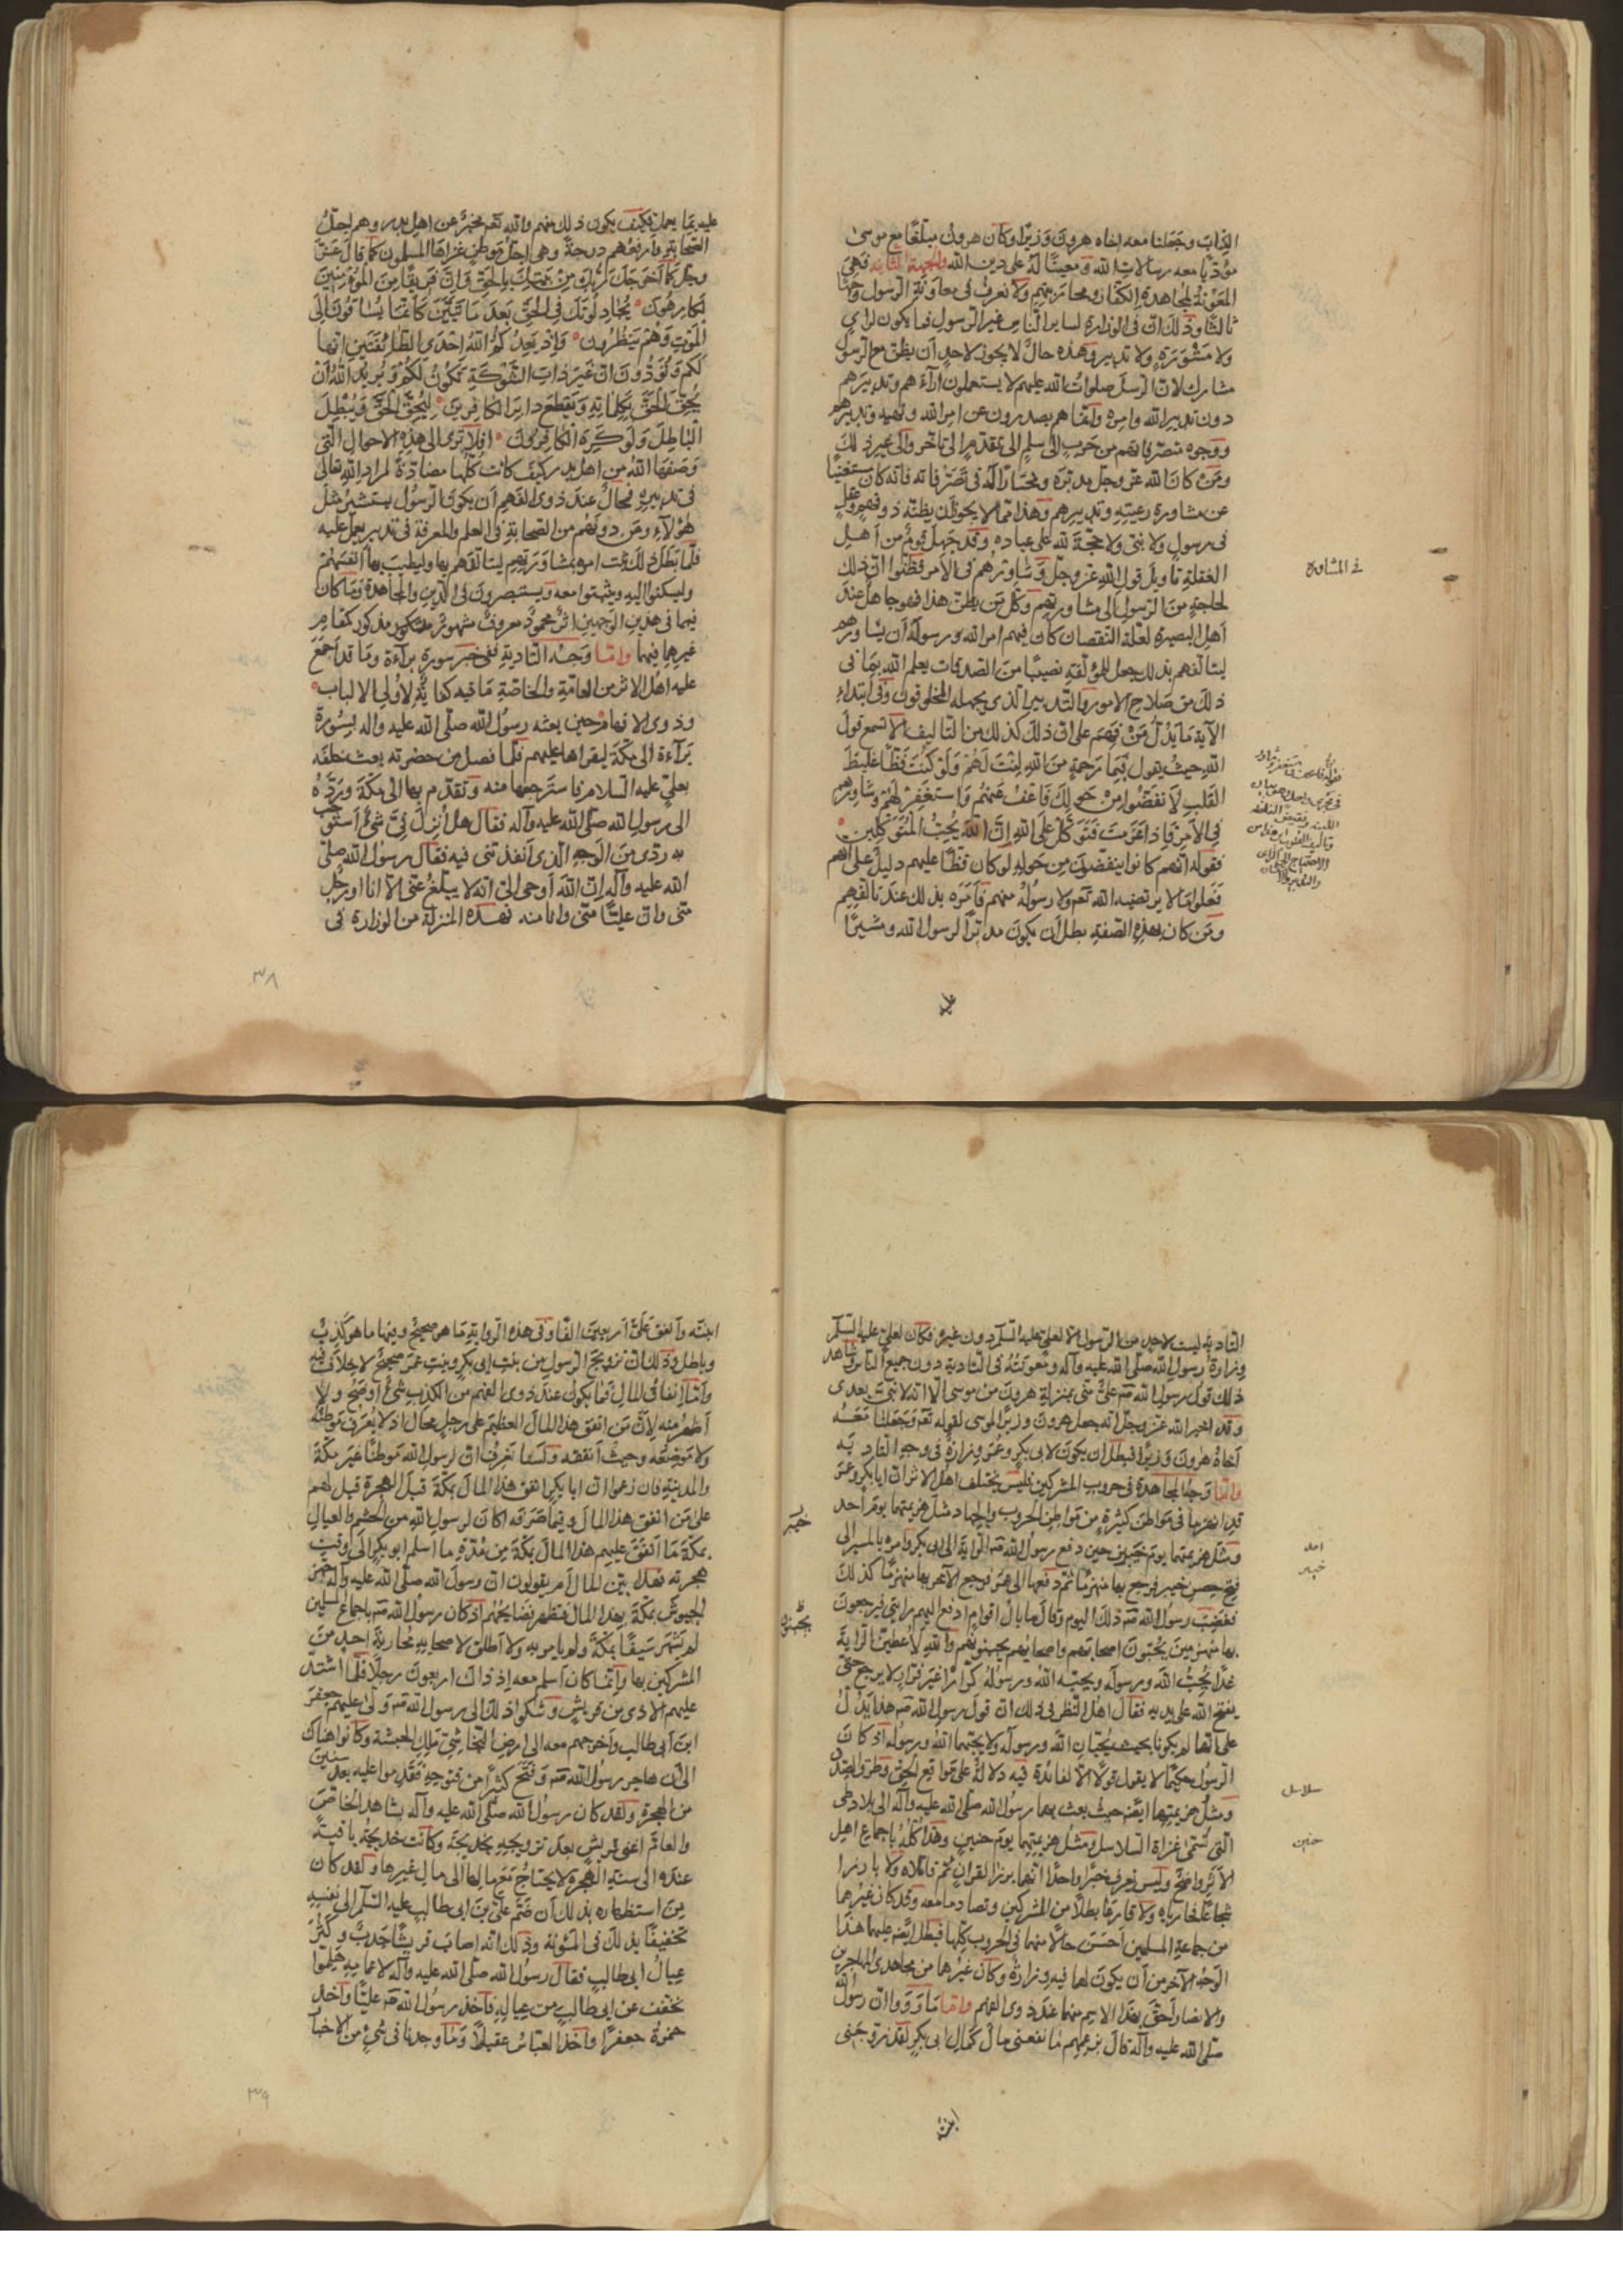 الكتاب وجعلنا معه اخاه هرون وزيرا وكان هرون مبلّغًا مع موسى
مؤدّيا معه رسالات الله ومعينًا له على دين الله والجهة الثانيه فهى
المعونة لمجاهدة الكفّار ومحاربتهم ولا نعرف فى معاونة الرسول وجهًا
ثالثا وذلك انّ فى الوزارة لساير الناس غير الرسول فما يكون لراى
ولا مشورة ولا تدبير وهذه حال لا يجوز لاحد أن يظنّ مع الرسول
مشارك لانّ الرسل صلوات الله عليهم لا يستعملون ارآءهم وتدبيرهم
دون تدبير الله وامره وانّما هم يصدرون عن امر الله ونهيه وتدبيرهم
ووجوه متصرفاتهم من حرب الى سلم الى تقدّم الى تاخر والى غير ذلك
ومن كان الله عزّ وجلّ مدبّره ومختارًا له فى تصرّفاته فانّه كان مستغنيًا
عن مشاورة رعيته وتدبيرهم وهذا ممّا لا يجوز أن يظنّه ذو فهم وعقل
فى رسول ولا نبىّ ولا حجّة لله على عباده وقد جهل قوم من أهل
الغفلة تأويل قول الله عزّ وجلّ وشاورهم فى الأمر فظنّوا انّ ذلك
لحاجة من الرسول الى مشاورتهم وكلّ من يظنّ هذا فهو جاهل عند
أهل البصيرة لعلّة النقصان كان فيهم امر الله ورسوله أن يشاورهم
ليتالّفهم بذلك وجعل للمؤلّفة نصيبًا من الصدقات يعلم الله بما فى
ذلك من صلاح الامور والتدبير الذى يجهله المخلوقون وفى ابتداء
الآية ما يدلّ من فهم على انّ ذلك كذلك من التاليف ألا تسمع قول
الله حيث يقول فَبِمَا رَحْمَةٍ مِنَ اللهِ لِنْتَ لَهُمْ وَلَوْ كُنْتَ فَظًّا غَلِيظَ
القَلْبِ لَانْفَضُّوا مِنْ حَوْلِكَ فَاعْفُ عَنْهُمْ وَاسْتَغْفِرْ لَهُمْ وَشَاوِرْهُمْ
فِى الأَمْرِ فَإِذَا عَزَمْتَ فَتَوَكَّلْ عَلَى اللهِ إِنَّ اللهَ يُحِبُّ المُتَوَكِّلِينَ
فقوله انّهم كانوا ينفضّون من حوله لو كان فظّا عليهم دليل على انّهم
فعلوا ما لا يرتضيه الله تعم ولا رسوله منهم فأمره بذلك عند تالّفهم
ومن كان بهذه الصفة بطل أن يكون مدبّرًا لرسول الله ومشيرًا
فى المشاوره
عليه
عليه بما يعمل فكيف يكون ذلك منهم والله تعم مخبر عن اهل بدر وهم اجلّ
الصحابة وارفعهم درجة وهى اجلّ موطن غزاها المسلمون كما قال عزّ
وجلّ كَمَا أَخْرَجَكَ رَبُّكَ مِنْ بَيْتِكَ بِالحَقِّ وَإِنَّ فَرِيقًا مِنَ المُؤْمِنِينَ
لَكَارِهُونَ يُجَادِلُونَكَ فِى الحَقِّ بَعْدَ مَا تَبَيَّنَ كَأَنَّمَا يُسَاقُونَ إِلَى
المَوْتِ وَهُمْ يَنْظُرُونَ وَإِذْ يَعِدُكُمُ اللهُ إِحْدَى الطَّائِفَتَيْنِ انّها
لَكُمْ وَتَوَدُّونَ انَّ غَيْرَ ذَاتِ الشَّوْكَةِ تَكُونُ لَكُمْ وَيُرِيدُ اللهُ أَنْ
يُحِقَّ الحَقَّ بِكَلِمَاتِهِ وَيَقْطَعَ دَابِرَ الكَافِرِينَ لِيُحِقَّ الحَقَّ وَيُبْطِلَ
البَاطِلَ وَلَوْ كَرِهَ الكَافِرُونَ افلا ترى الى هذه الاحوال التى
وصفها الله من اهل بدر كيف كانت كلّها مضادّة لمراد الله تعالى
فى تدبيره فمحال عند ذوى الفهم أن يكون الرسول يستشير مثل
هؤلاء ومن دونهم من الصحابة فى العلم والمعرفة فى تدبير يعمل عليه
فلمّا بطل ذلك ثبت امره بمشاورتهم ليتالّفهم بها وليطيب بها انفسهم
وليسكنوا اليه ويثبتوا معه ويستبصرون فى الدين والمجاهدة وما كان
فيهما فى هذين الوجهين اثر محمود معروف مشهور مذكور كمقام
غيرها فيهما وامّا وجه التادية ففى خبر سورة برآءة وما قد أجمع
عليه اهل الاثر من العامّة والخاصّة ما فيه كفاية لاولى الالباب
وذوى الافهام حين بعثه رسول الله صلّى الله عليه واله بسورة
برآءة الى مكّة ليقراها عليهم فلمّا فصل من حضرته بعث خلفه
بعلىّ عليه السلام فاسترجعها منه وتقدّم بها الى مكّة وردّه
الى رسول الله صلّى الله عليه وآله فقال هل أنزل فىّ شئ أستوجب
به ردّى من الوجه الذى أنفذتنى فيه فقال رسول الله صلّى
الله عليه وآله انّ الله أوحى الىّ انّه لا يبلّغ عنّى الّا انا او رجل
منّى وانّ عليًّا منّى وانا منه فهذه المنزلة من الوزارة فى
٣٨
التادية ليست لاحد من الرسول الّا لعلىّ عليه السلام دون غيره فكان لعلىّ عليه السلام
وزارة رسول الله صلّى الله عليه وآله ومعونته فى التادية دون جميع الناس وشاهد
ذلك قول رسول الله صم علىّ منّى بمنزلة هرون من موسى الّا انّه لا نبىّ بعدى
وقد اخبر الله عزّ وجلّ انّه جعل هرون وزيرًا لموسى لقوله تعم وجعلنا معه
أخاه هرون وزيرًا فبطل ان يكون لابى بكر وعمر وزارة فى وجه التادية
وامّا وجه المجاهدة فى حروب المشركين فليس يختلف اهل الاثر انّ ابا بكر وعمر
قد انهزما فى مواطن كثيرة من مواطن الحروب والجهاد مثل هزيمتهما يوم أحد
ومثل هزيمتهما يوم خيبر حين دفع رسول الله صم الراية الى ابى بكر وامره بالمسير الى
فتح حصن خيبر فرجع بها منهزمًا ثمّ دفعها الى عمر فرجع الآخر بها منهزمًا كذلك
فغضب رسول الله صم ذلك اليوم وقال ما بال اقوام ادفع اليهم رايتى فيرجعون
بها منهزمين يجبّنون اصحابهم واصحابهم يجبّنونهم والله لأعطينّ الراية
غدًا يحبّ الله ورسوله ويحبّه الله ورسوله كرّارًا غير فرّار لا يرجع حتّى
يفتح الله على يديه فقال اهل النظر فى ذلك انّ قول رسول الله صم هذا يدلّ
على انّهما لم يكونا بحيث يحبّان الله ورسوله ولا يحبّهما الله ورسوله اذ كان
الرسول حكيمًا لا يقول قولًا الّا لفائدة فيه دلالة على مواقع الحق وطرق الصدق
ومثل هزيمتهما ايضا حيث بعث بهما رسول الله صلّى الله عليه وآله الى بلاد وهى
التى تسمّى غزاة السلاسل ومثل هزيمتهما يوم حنين وهذا كلّه باجماع اهل
الأثر واضح وليس نعرف خبرا واحدا انّهما برزا لقران ثمّ قاتلاه ولا بارزا
شجاعًا فحارباه ولا قارعا بطلًا من المشركين وتصادما معه وقد كان غيرهما
من جماعة المسلمين أحسن حالًا منهما فى الحروب كلّها فبطل ايضا عليهما هذا
الوجه الآخر من أن يكون لهما فيه وزارة وكان غيرهما من مجاهدى المهاجرين
والانصار أحقّ بهذا الاسم منهما عند ذوى الفهم وامّا ما رووا انّ رسول الله
صلّى الله عليه وآله قال بزعمهم ما نفعنى مال كمال ابى بكر لقد زوّجنى
احد
خيبر
سلاسل
حنين
خيبر
يجبنون
ابنته
ابنته وأنفق علىّ أربعين الفًا وفى هذه الرواية ما هو صحيح وفيها ما هو كذب
وباطل وذلك انّ تزويج الرسول من بنت ابى بكر وبنت عمر صحيح لا خلاف فيه
وأمّا إنفاق المال فما يكون عند ذوى الفهم من الكذب شئ أوضح ولا
أظهر منه لأنّ من انفق هذا المال العظيم على رجل محال اذ لا يعرف موطنه
ولا موضعه وحيث أنفقه ولسنا نعرف انّ لرسول الله موطنًا غير مكّة
والمدينة فان زعموا انّ ابا بكر انفق هذا المال بمكّة قبل الهجرة قيل لهم
على من انفق هذا المال وفيما صرفه اكان لرسول الله من الحشم والعيال
بمكّة ما أنفق عليهم هذا المال بمكّة من مدّة ما اسلم ابو بكر الى وقت
هجرته فهذا بيّن المحال أم يقولون انّ رسول الله صلّى الله عليه وآله جهّز
الجيوش بمكّة بهذا المال فتظهر فضايحهم اذ كان رسول الله صم باجماع المسلمين
لم يشهر سيفًا بمكّة ولم يامر به ولا أطلق لاصحابه محاربة احد من
المشركين بها وانّما كان أسلم معه اذ ذاك اربعون رجلًا فلمّا اشتدّ
عليهم الاذى من قريش وشكوا ذلك الى رسول الله صم ولّى عليهم جعفر
ابن أبى طالب وأخرجهم معه الى ارض النجاشىّ ملك الحبشة وكانوا هناك
الى أن هاجر رسول الله صم وفتح كثيرًا من فتوحه فقدموا عليه بعد سنين
من الهجرة ولقد كان رسول الله صلّى الله عليه وآله بشاهد الخاصّ
والعامّ اغنى قريش بعد تزويجه بخديجة وكانت خديجة باقية
عنده الى سنة الهجرة لا يحتاج مع مالها الى مال غيرها ولقد كان
من استظهاره بذلك أن ضمّ علىّ بن ابى طالب عليه السلام الى نفسه
تخفيفًا بذلك فى المئونة وذلك انّه اصاب قريشًا جدب وكثر
عيال ابى طالب فقال رسول الله صلّى الله عليه وآله لاعمامه هلمّوا
نخفّف عن ابى طالب من عياله فأخذ رسول الله صم عليًّا وأخذ
حمزة جعفرًا واخذ العباس عقيلًا وما وجدنا فى شئ من الاخبار
٣٩